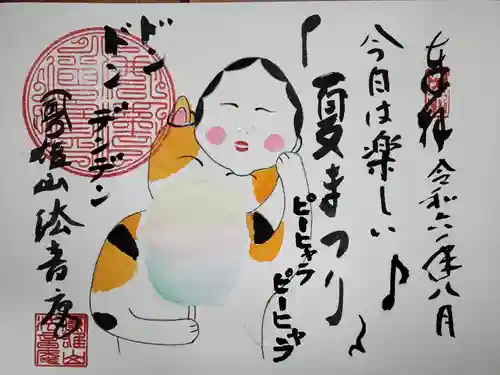 奉拝 令和六年八月
今日は楽しい♪
「夏まつり〜
ピーヒャラ
ピーヒャラ
ドン
ドン
デンデン
鳳雄山 法音庵